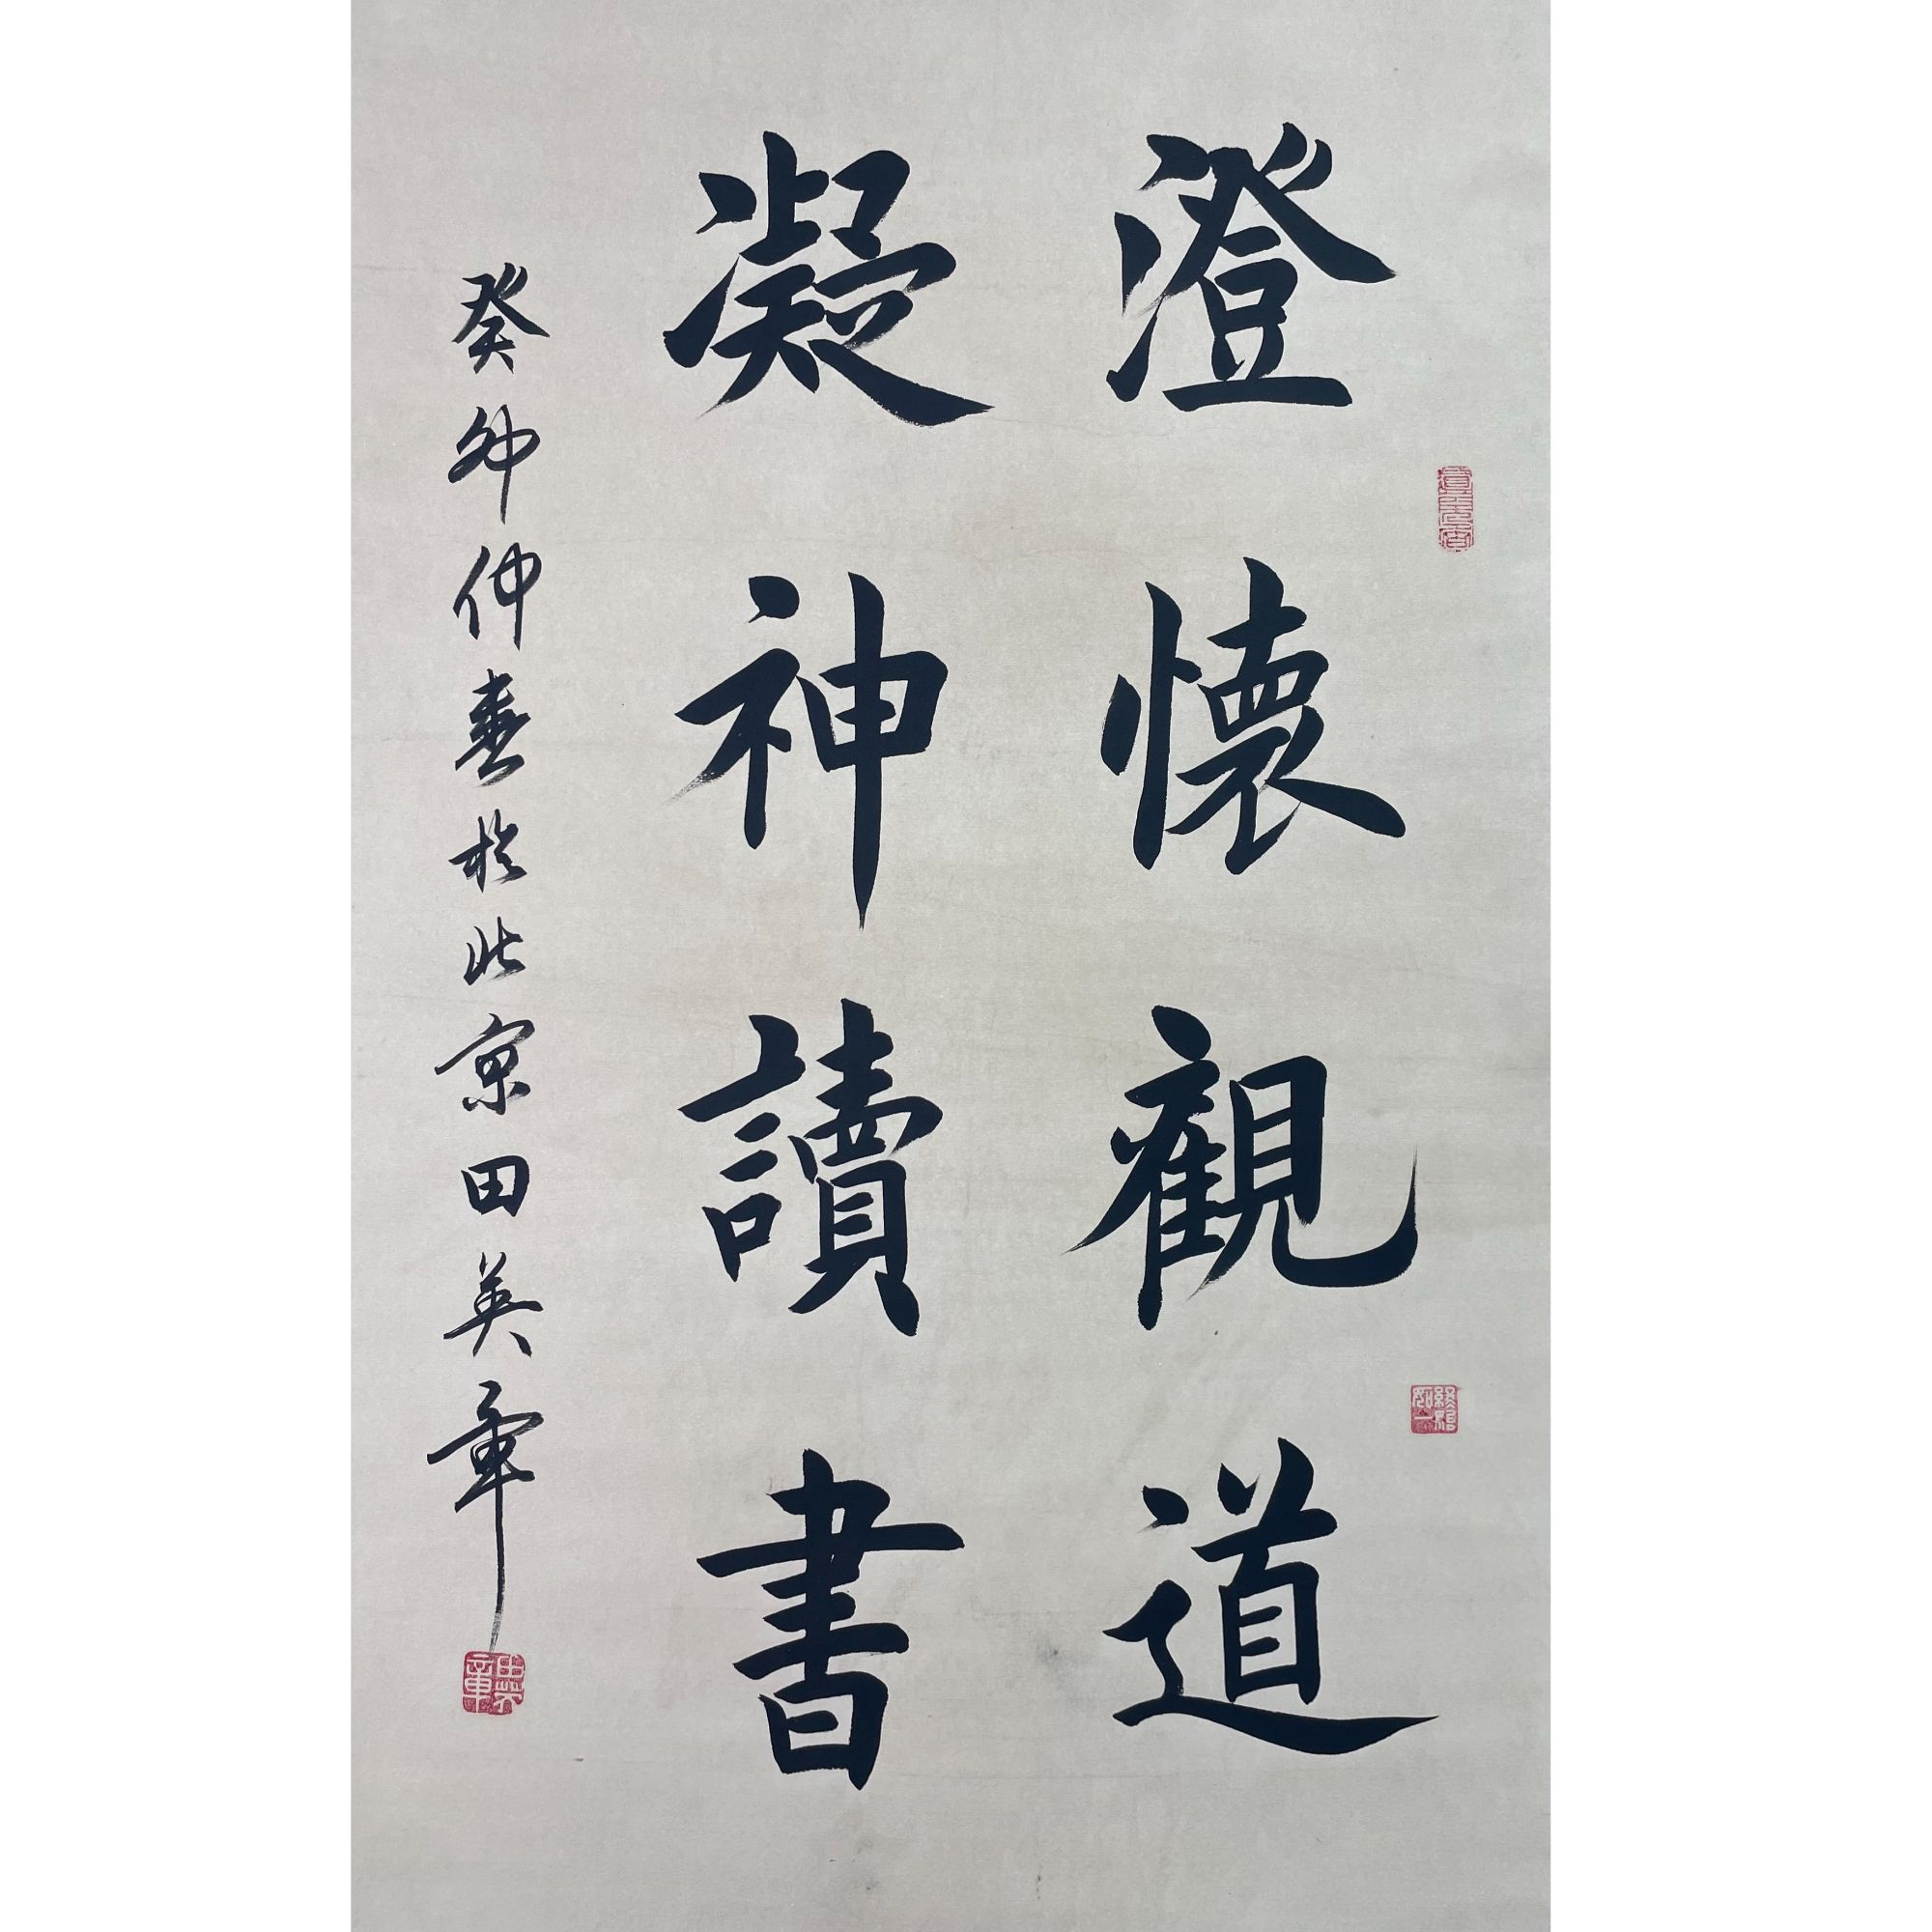 澄懷觀道
凝神讀書
癸卯仲春於北京田英章